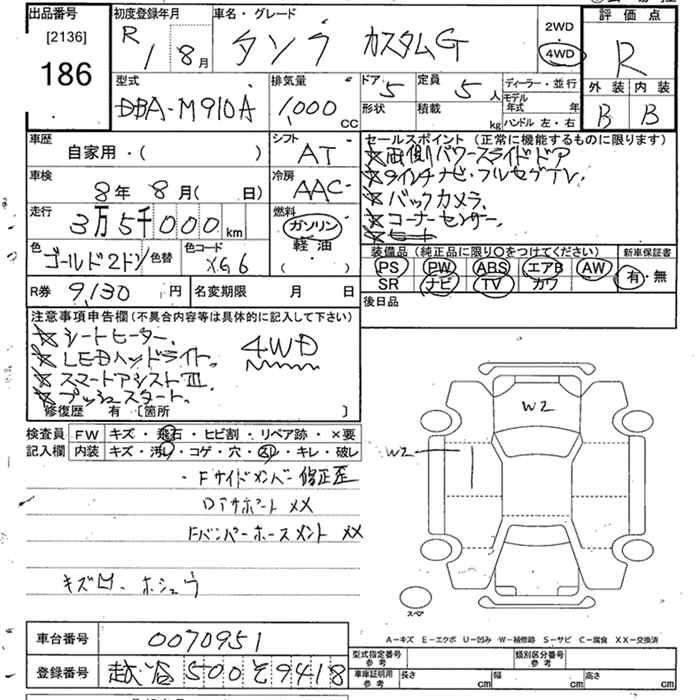 出品番号
[2136]
186
初度登録年月
R 1 8月
車名・グレード
タンク カスタムG
2WD
4WD
評価点
R
外装 内装
B B
型式
DBA-M910A
排気量
1,000 CC
ドア 5
形状
定員 5 人
積載 kg
ディーラー・並行
モデル年式 年
ハンドル 左・右
車歴
自家用・( )
シフト
AT
車検
8年 8月( 日)
冷房
AAC
走行
3万5千000 km
燃料
ガソリン
軽油
( )
色
ゴールド2トン/色替
色コード
XG6
R券 9,130 円
名変期限 月 日
セールスポイント (正常に機能するものに限ります)
☆両側パワースライドドア
☆9インチナビ・フルセグTV.
☆バックカメラ.
☆コーナーセンサー.
装備品 (純正品に限り○をつけてください)
PS PW ABS エアB AW
SR ナビ TV カワ
新車保証書
有・無
後日品
注意事項申告欄(不具合内容等は具体的に記入して下さい)
☆シートヒーター.
☆LEDヘッドライト.
☆スマートアシストⅢ.
☆プッシュスタート.
4WD
修復歴 有 [箇所 ]
検査員 FW キズ・飛石・ヒビ割・リペア跡・×要
記入欄 内装 キズ・汚れ・コゲ・穴・スレ・キレ・破レ
・Fサイドメンバー修正歪
Dアサポート XX
Fバンパーホースメント XX
キズ凹. ホシュウ
W2
W2
スペア
A-キズ E-エクボ U-凹み W-補修跡 S-サビ C-腐食 XX-交換済
車台番号 0070951
登録番号 越谷500そ9418
型式指定番号 参考
類別区分番号 参考
車庫証明用 参考 長さ cm 幅 cm 高さ cm